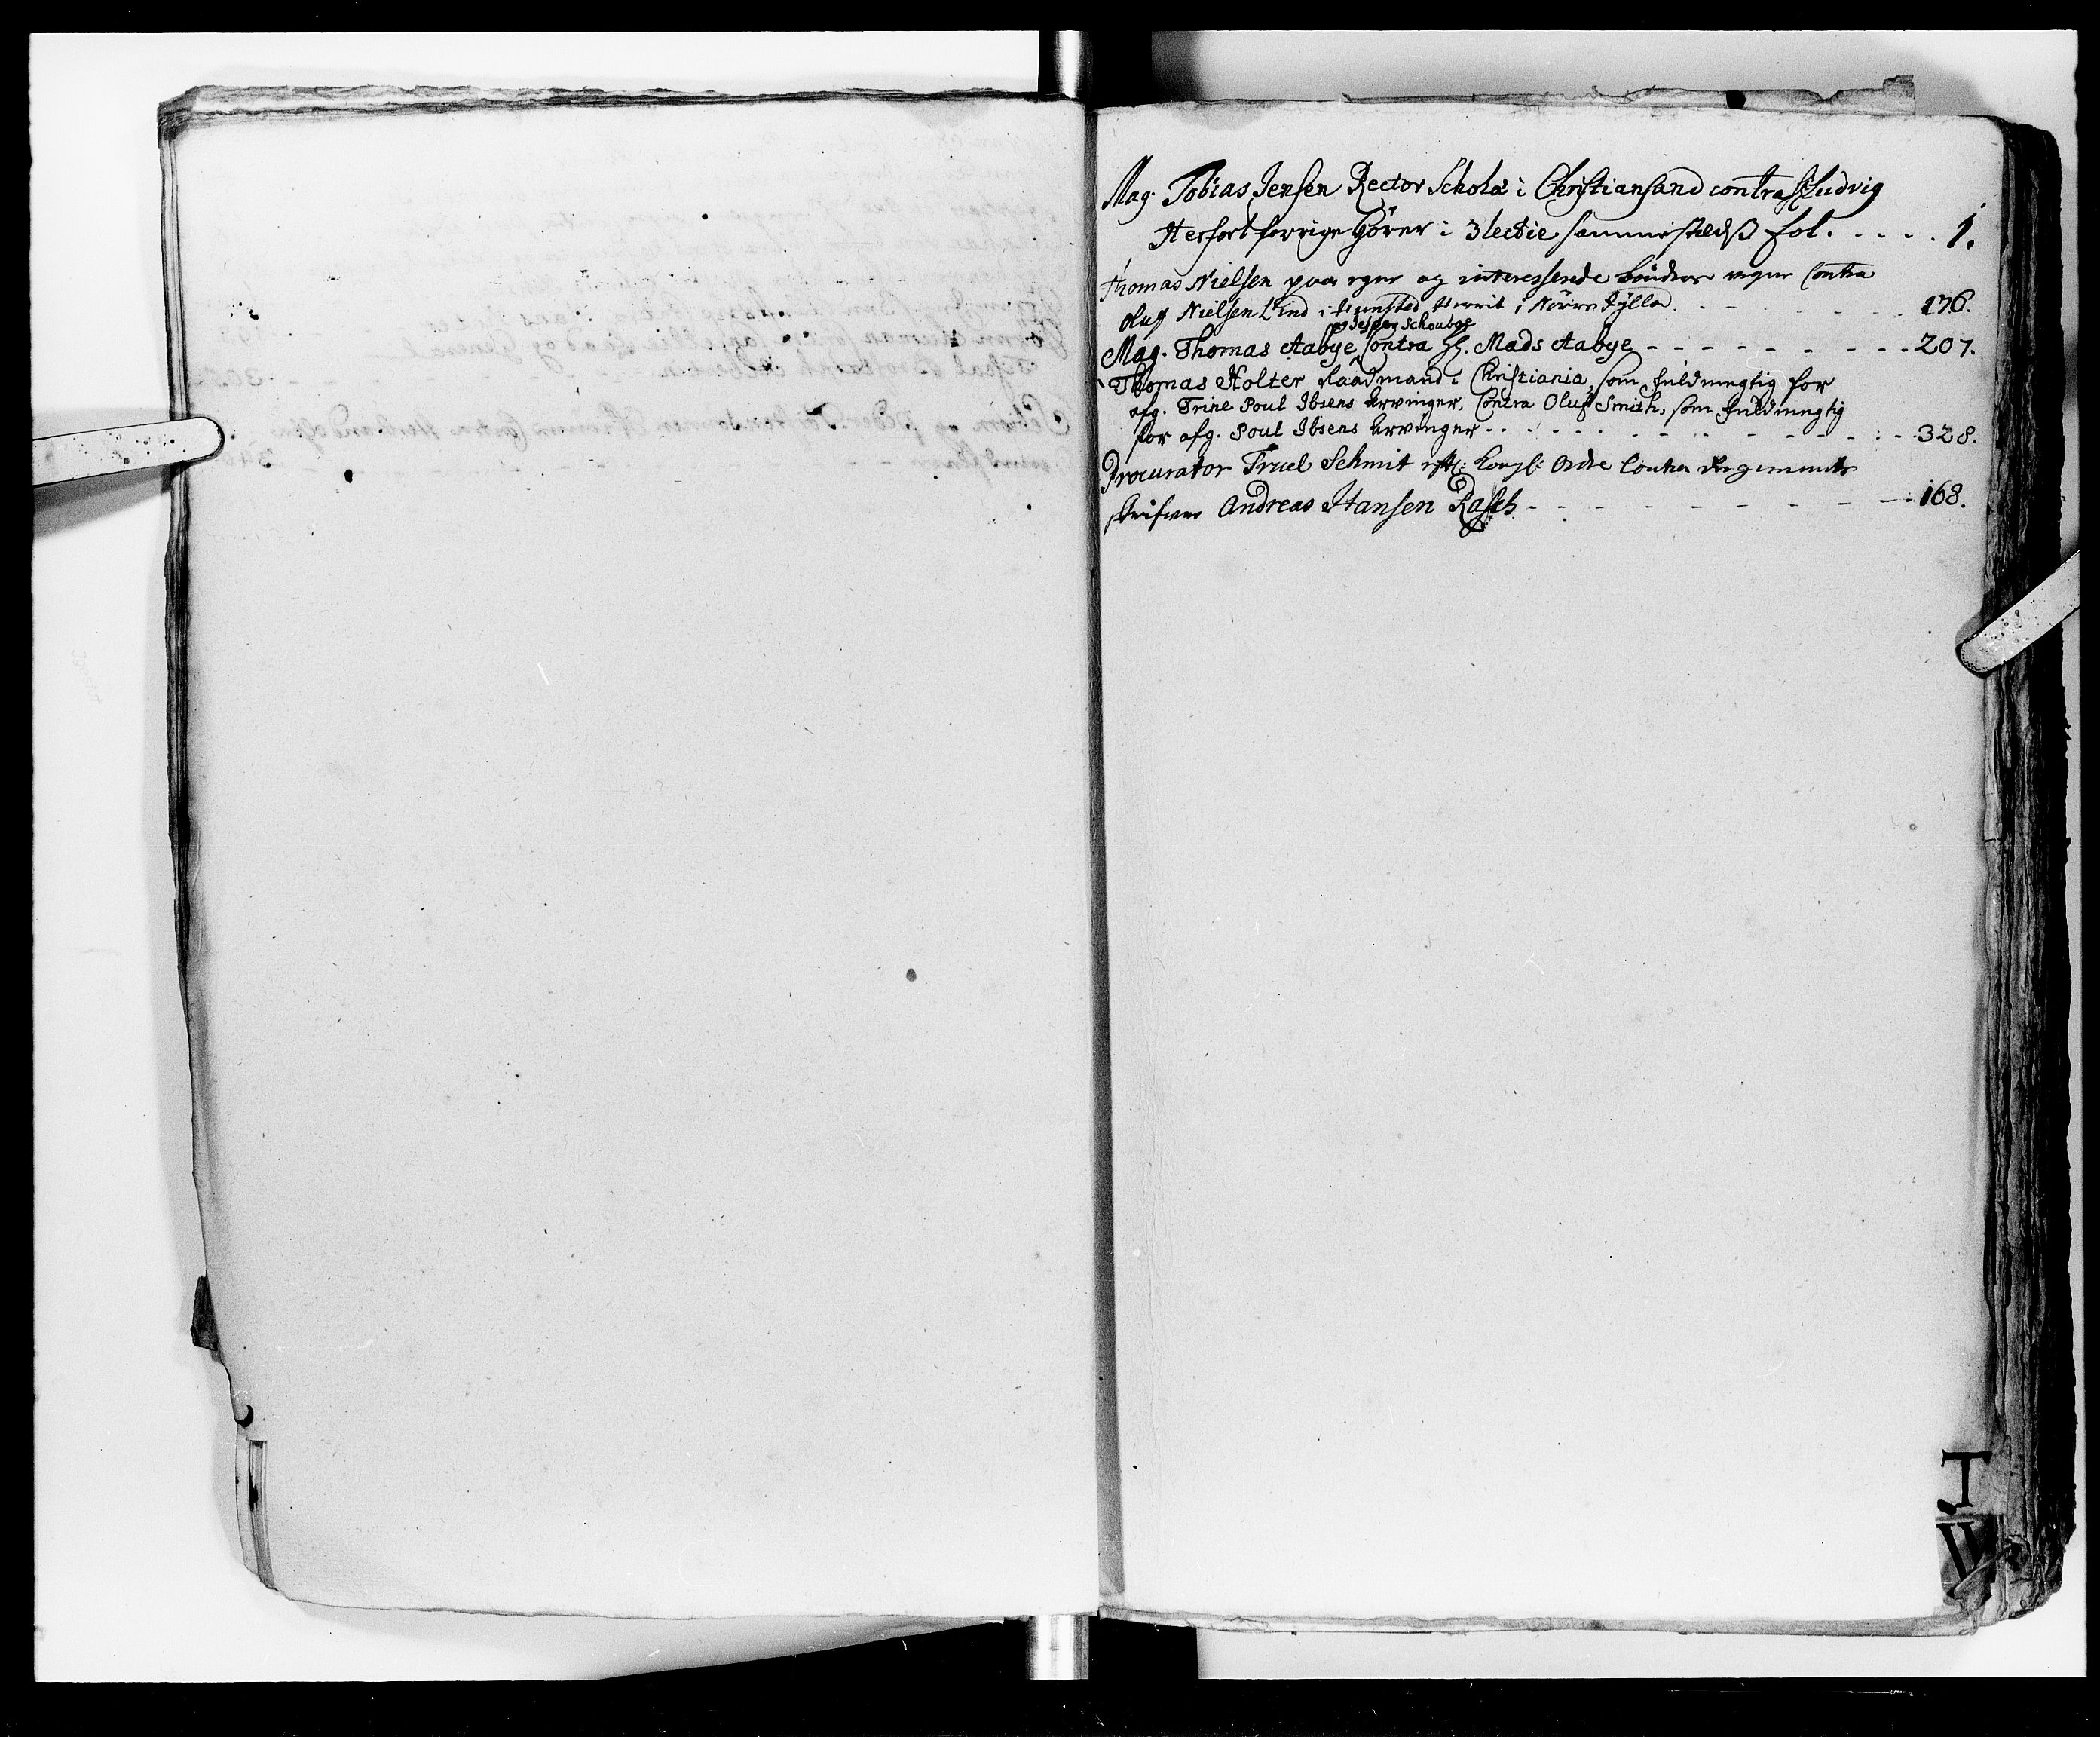 Mag. Tobias Jensen Rector Scholæ i Christiansand contra Ludvig
Herfort forrige Hörer i 3 lectie sammestedß fol. . . . . 1.
Thomas Nielsen paa egne og interesserede Bönders vegne Contra
Oluf Nielsen Lind i Hunsted Herrit i Nörre Jylld. - - - - - 176.
Jesper Schoubye
Mag. Thomas Aabye Contra Hr. Mads Aabye - - - - - - - - 207.
Thomas Holter Raadmand i Christiania, som fuldmegtig for
afg. Trine Poul Ibsens Arvinger, Contra Oluf Smith, som fuldmegtig
for afg. Poul Ibsens Arvinger - - - - - - - - - 328.
Procurator Truel Schmit efter Kongl: Ordre Contra Regiments
skrifver Andreas Hansen Rasch - - - - - - - - 168.
T
W